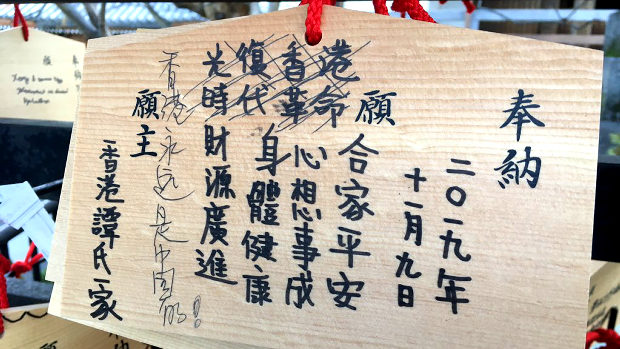 奉納
二〇一九年
十一月九日
願
光復香港
時代革命
合家平安
心想事成
身體健康
財源廣進
香港永远是中国的!
願主
香港譚氏一家